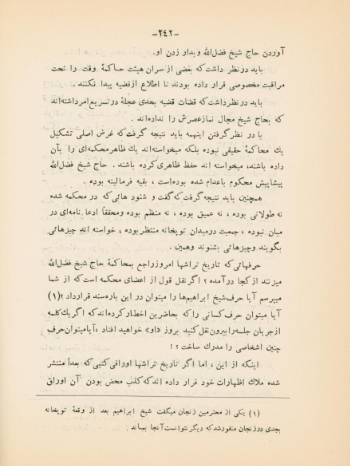 -۲۴۲-
آوردن حاج شیخ فضل‌الله وبدار زدن او.
باید درنظر داشت که بعضی از سران هیئت حاکمهٔ وقت را تحت
مراقبت مخصوصی قرار داده بودند تا اطلاع ازقضیه پیدا نکنند.
باید درنظرداشت که قضات قضیه بحدی عجلهٔ درتسریع امر داشته‌اند
که بحاج شیخ مجال نمازعصرش را نداده‌اند.
با در نظر گرفتن اینهمه باید نتیجه گرفت که غرض اصلی تشکیل
یك محاکمهٔ حقیقی نبوده بلکه میخواسته‌اند یك ظاهر محکمه‌ای را بآن
داده باشند، میخواسته اند حفظ ظاهری کرده باشند. حاج شیخ فضل‌الله
پیشاپیش محکوم باعدام شده بوده‌است، بقیه فرمالیته بوده.
همچنین باید نتیجه گرفت که گفت و شنود هائی که در محکمه شده
نه طولانی بوده، نه عمیق بوده، نه منظم بوده ومحققاً ادعا نامه‌ای در
میان نبوده، جمعیت درمیدان توپخانه منتظر بوده، خواسته اند چیزهائی
بگویند وچیزهائی بشنوند وهمین.
حرفهائی که تاریخ تراشها امروز راجع بمحاکمهٔ حاج شیخ فضل‌الله
میزنند از کجا درآمده؟ اگر نقل قول از اعضای محکمه است که از شما
میپرسم آیا حرف شیخ ابراهیم‌ها را میتوان در این باره سند قرار داد؟(۱)
آیا میتوان حرف کسانی را که بحاضرین اخطار کرده‌اند که اگر یك کلمه
از جریان جلسه را بیرون نقل کنید بروز داد، خواهید افتاد، آیا میتوان حرف
چنین اشخاصی را مدرك ساخت؟!
اینکه از این، اما اگر تاریخ تراشها اوراقی کتبی که بعداً منتشر
شده ملاك اظهارات خود قرار داده اند که کذب محض بودن آن اوراق
(۱) یکی از محترمین زنجان میگفت شیخ ابراهیم بعد از وقعهٔ توپخانه
بحدی درزنجان منفور شد که دیگر نتوانست آنجا بماند.